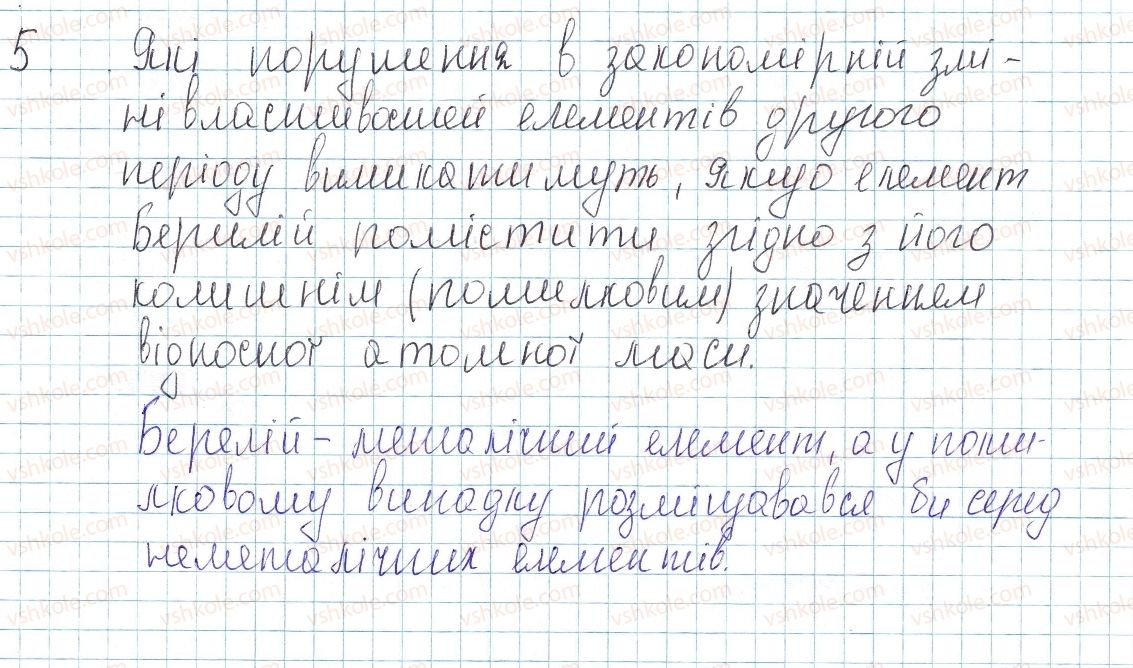 5 Які порушення в закономірній змі-
ні властивостей елементів другого
періоду виникатимуть, якщо елемент
Берилій помістити згідно з його
колишнім (помилковим) значенням
відносної атомної маси.
Берелій - металічний елемент, а у поми-
лковому випадку розміщувався би серед
неметалічних елементів.
vshkole.com